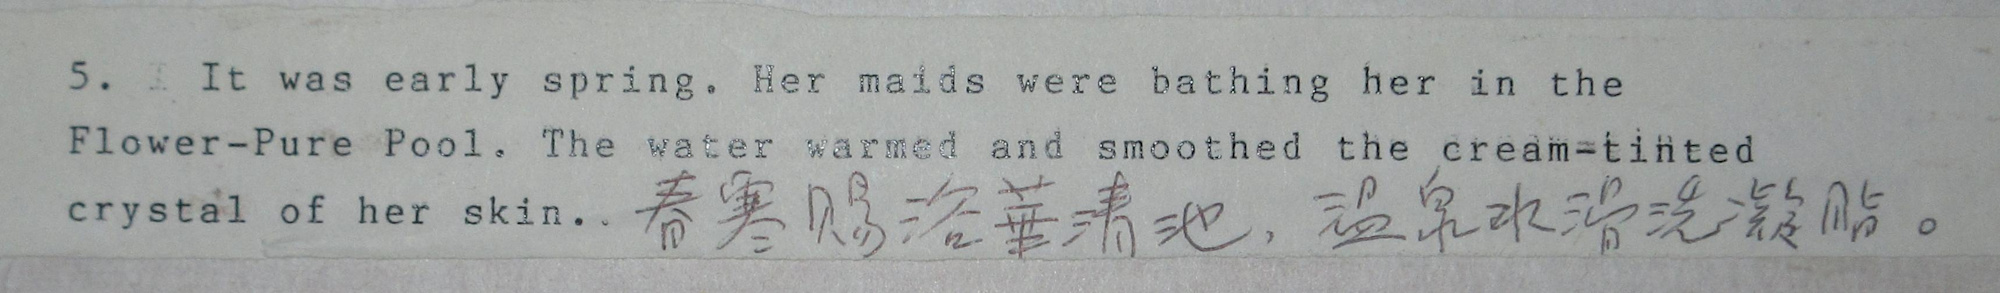 5. It was early spring. Her maids were bathing her in the
Flower-Pure Pool. The water warmed and smoothed the cream-tinted
crystal of her skin.. 春寒赐浴華清池，温泉水滑洗凝脂。